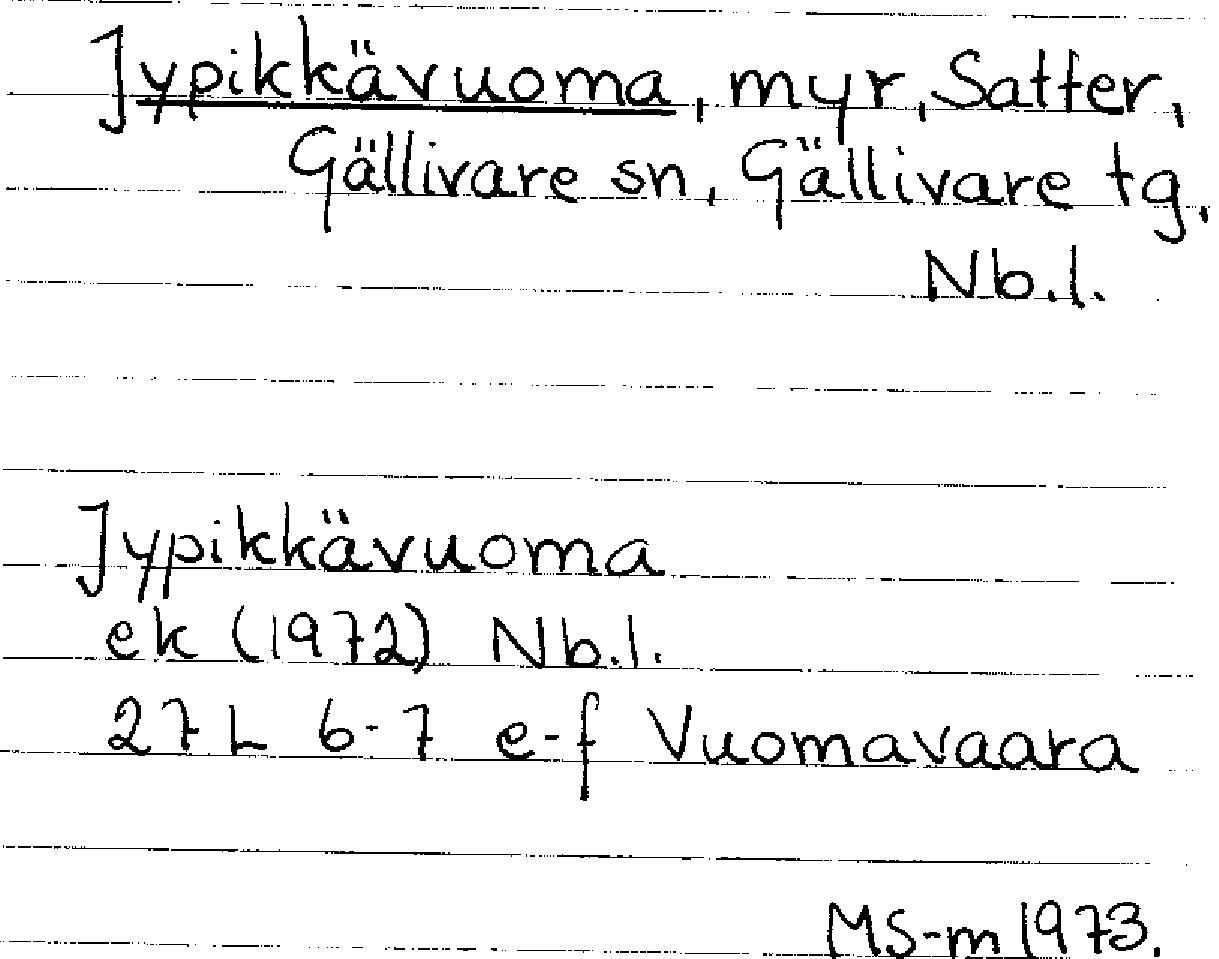 Jypikkävuoma, myr, Satter,
Gällivare sn, Gällivare tg.
Nb.l.
Jypikkävuoma
ek (1972) Nb.l.
27L 6-7 e-f Vuomavaara
MS-m 1973.